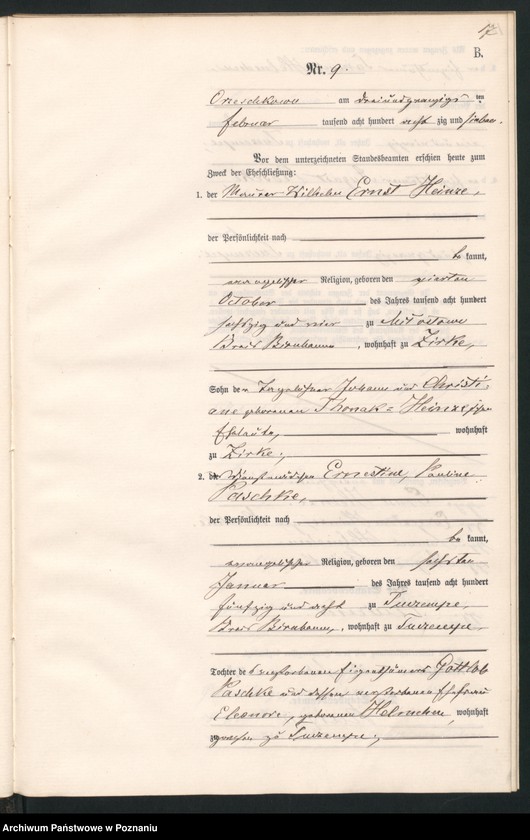 17
B.
Nr. 9.
Orzeschkowo am dreiundzwanzigsten
Februar tausend acht hundert acht zig und sieben.
Vor dem unterzeichneten Standesbeamten erschien heute zum
Zweck der Eheschließung:
1. der Maurer Wilhelm Ernst Heinze,
der Persönlichkeit nach
be kannt,
evangelischer Religion, geboren den vierten
October des Jahres tausend acht hundert
sechszig und vier zu
Kreis Birnbaum, wohnhaft zu Zirke,
Sohn der Tagelöhner Johann und Christi-
ane geborenen Heinze'schen
Eheleute, wohnhaft
zu Zirke;
2. die Ernestine, Pauline
Paschke,
der Persönlichkeit nach
be kannt,
evangelischer Religion, geboren den sechsten
Januar des Jahres tausend acht hundert
fünfzig und acht zu
Kreis Birnbaum, wohnhaft zu
Tochter des verstorbenen Eigenthümers Gottlob
Paschke und dessen verstorbenen Ehefrau
Eleonore, geborenen wohnhaft
gewesen zu
Archiwum Państwowe w Poznaniu